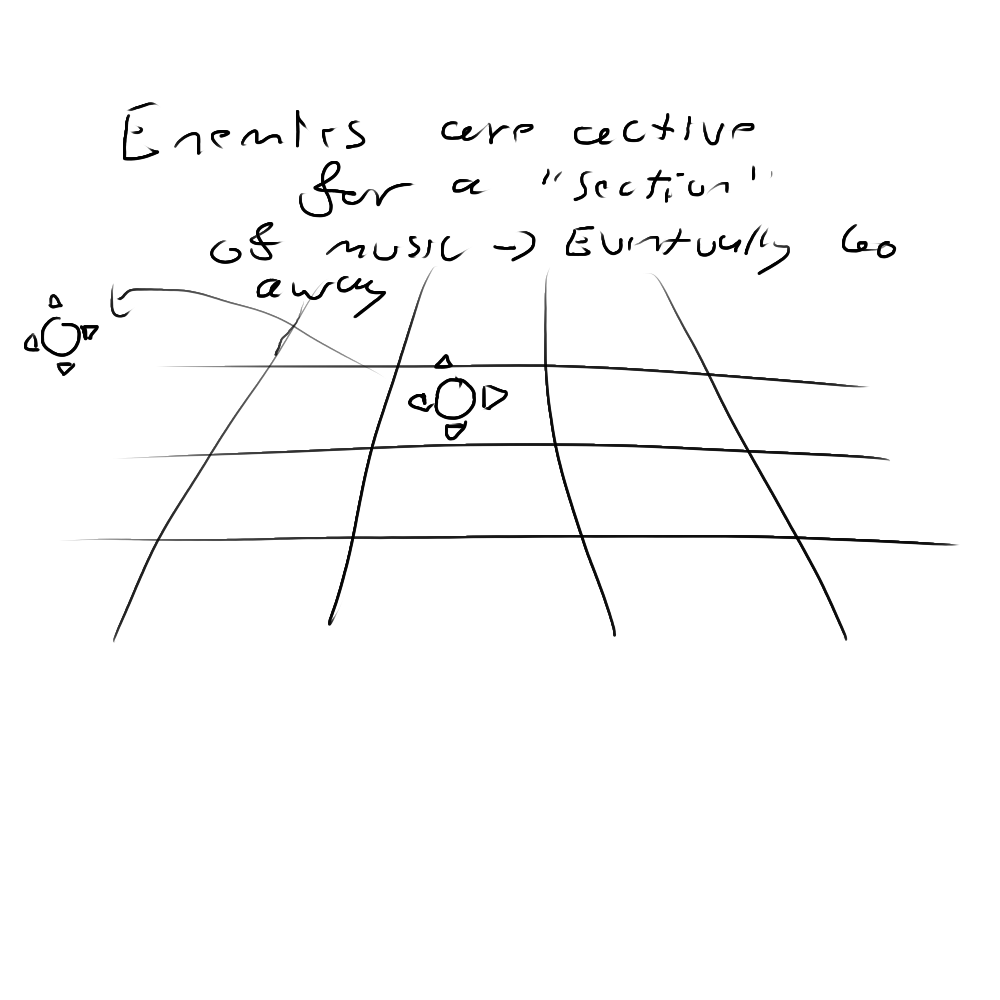 Enemies are active
for a "section"
of music → Eventually Go
away